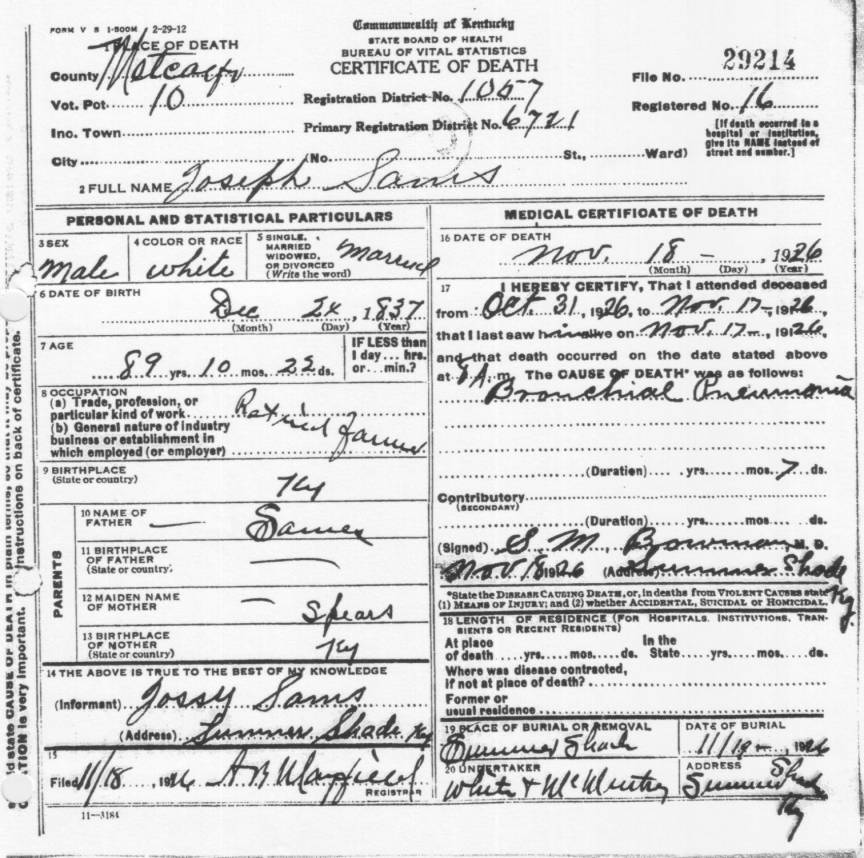 FORM V S 1-500M 2-29-12
Commonwealth of Kentucky
STATE BOARD OF HEALTH
BUREAU OF VITAL STATISTICS
CERTIFICATE OF DEATH
1 PLACE OF DEATH
County Metcalfe
Vot. Pct. 10
Inc. Town
City
Registration District No. 1057
Primary Registration District No. 6721
(No. St., Ward)
File No. 29214
Registered No. 16
[If death occurred in a
hospital or institution,
give its NAME instead of
street and number.]
2 FULL NAME Joseph Sams
PERSONAL AND STATISTICAL PARTICULARS
3 SEX
Male
4 COLOR OR RACE
white
5 SINGLE,
MARRIED
WIDOWED,
OR DIVORCED
(Write the word)
Married
6 DATE OF BIRTH
Dec 24, 1837
(Month) (Day) (Year)
7 AGE
89 yrs. 10 mos. 22 ds.
IF LESS than
1 day... hrs.
or... min.?
8 OCCUPATION
(a) Trade, profession, or
particular kind of work
(b) General nature of industry
business or establishment in
which employed (or employer)
Retired farmer
9 BIRTHPLACE
(State or country)
Ky
PARENTS
10 NAME OF
FATHER — Sames
11 BIRTHPLACE
OF FATHER
(State or country) —
12 MAIDEN NAME
OF MOTHER — Spears
13 BIRTHPLACE
OF MOTHER
(State or country) Ky
14 THE ABOVE IS TRUE TO THE BEST OF MY KNOWLEDGE
(Informant) Jossy Sams
(Address) Summer Shade Ky
15
Filed 11/18, 1926 A B
REGISTRAR
11-3184
MEDICAL CERTIFICATE OF DEATH
16 DATE OF DEATH
Nov. 18 -, 1926
(Month) (Day) (Year)
17 I HEREBY CERTIFY, That I attended deceased
from Oct. 31, 1926, to Nov. 17-, 1926,
that I last saw him alive on Nov. 17-, 1926,
and that death occurred on the date stated above
at A. m. The CAUSE OF DEATH* was as follows:
Bronchial Pneumonia
(Duration) yrs. mos. 7 ds.
Contributory
(SECONDARY)
(Duration) yrs. mos. ds.
(Signed) S. M. Bowman, M. D.
Nov 18 1926 (Address) Summer Shade Ky.
*State the DISEASE CAUSING DEATH, or, in deaths from VIOLENT CAUSES state
(1) MEANS OF INJURY; and (2) whether ACCIDENTAL, SUICIDAL OR HOMICIDAL.
18 LENGTH OF RESIDENCE (FOR HOSPITALS, INSTITUTIONS, TRAN-
SIENTS OR RECENT RESIDENTS)
At place
of death yrs. mos. ds.
In the
State yrs. mos. ds.
Where was disease contracted,
if not at place of death?
Former or
usual residence
19 PLACE OF BURIAL OR REMOVAL
Summer Shade
DATE OF BURIAL
11/19-, 1926
20 UNDERTAKER
White & McMurtry
ADDRESS
Summer Shade
Ky
state CAUSE OF DEATH in plain terms, so that it may be
is very important. instructions on back of certificate.